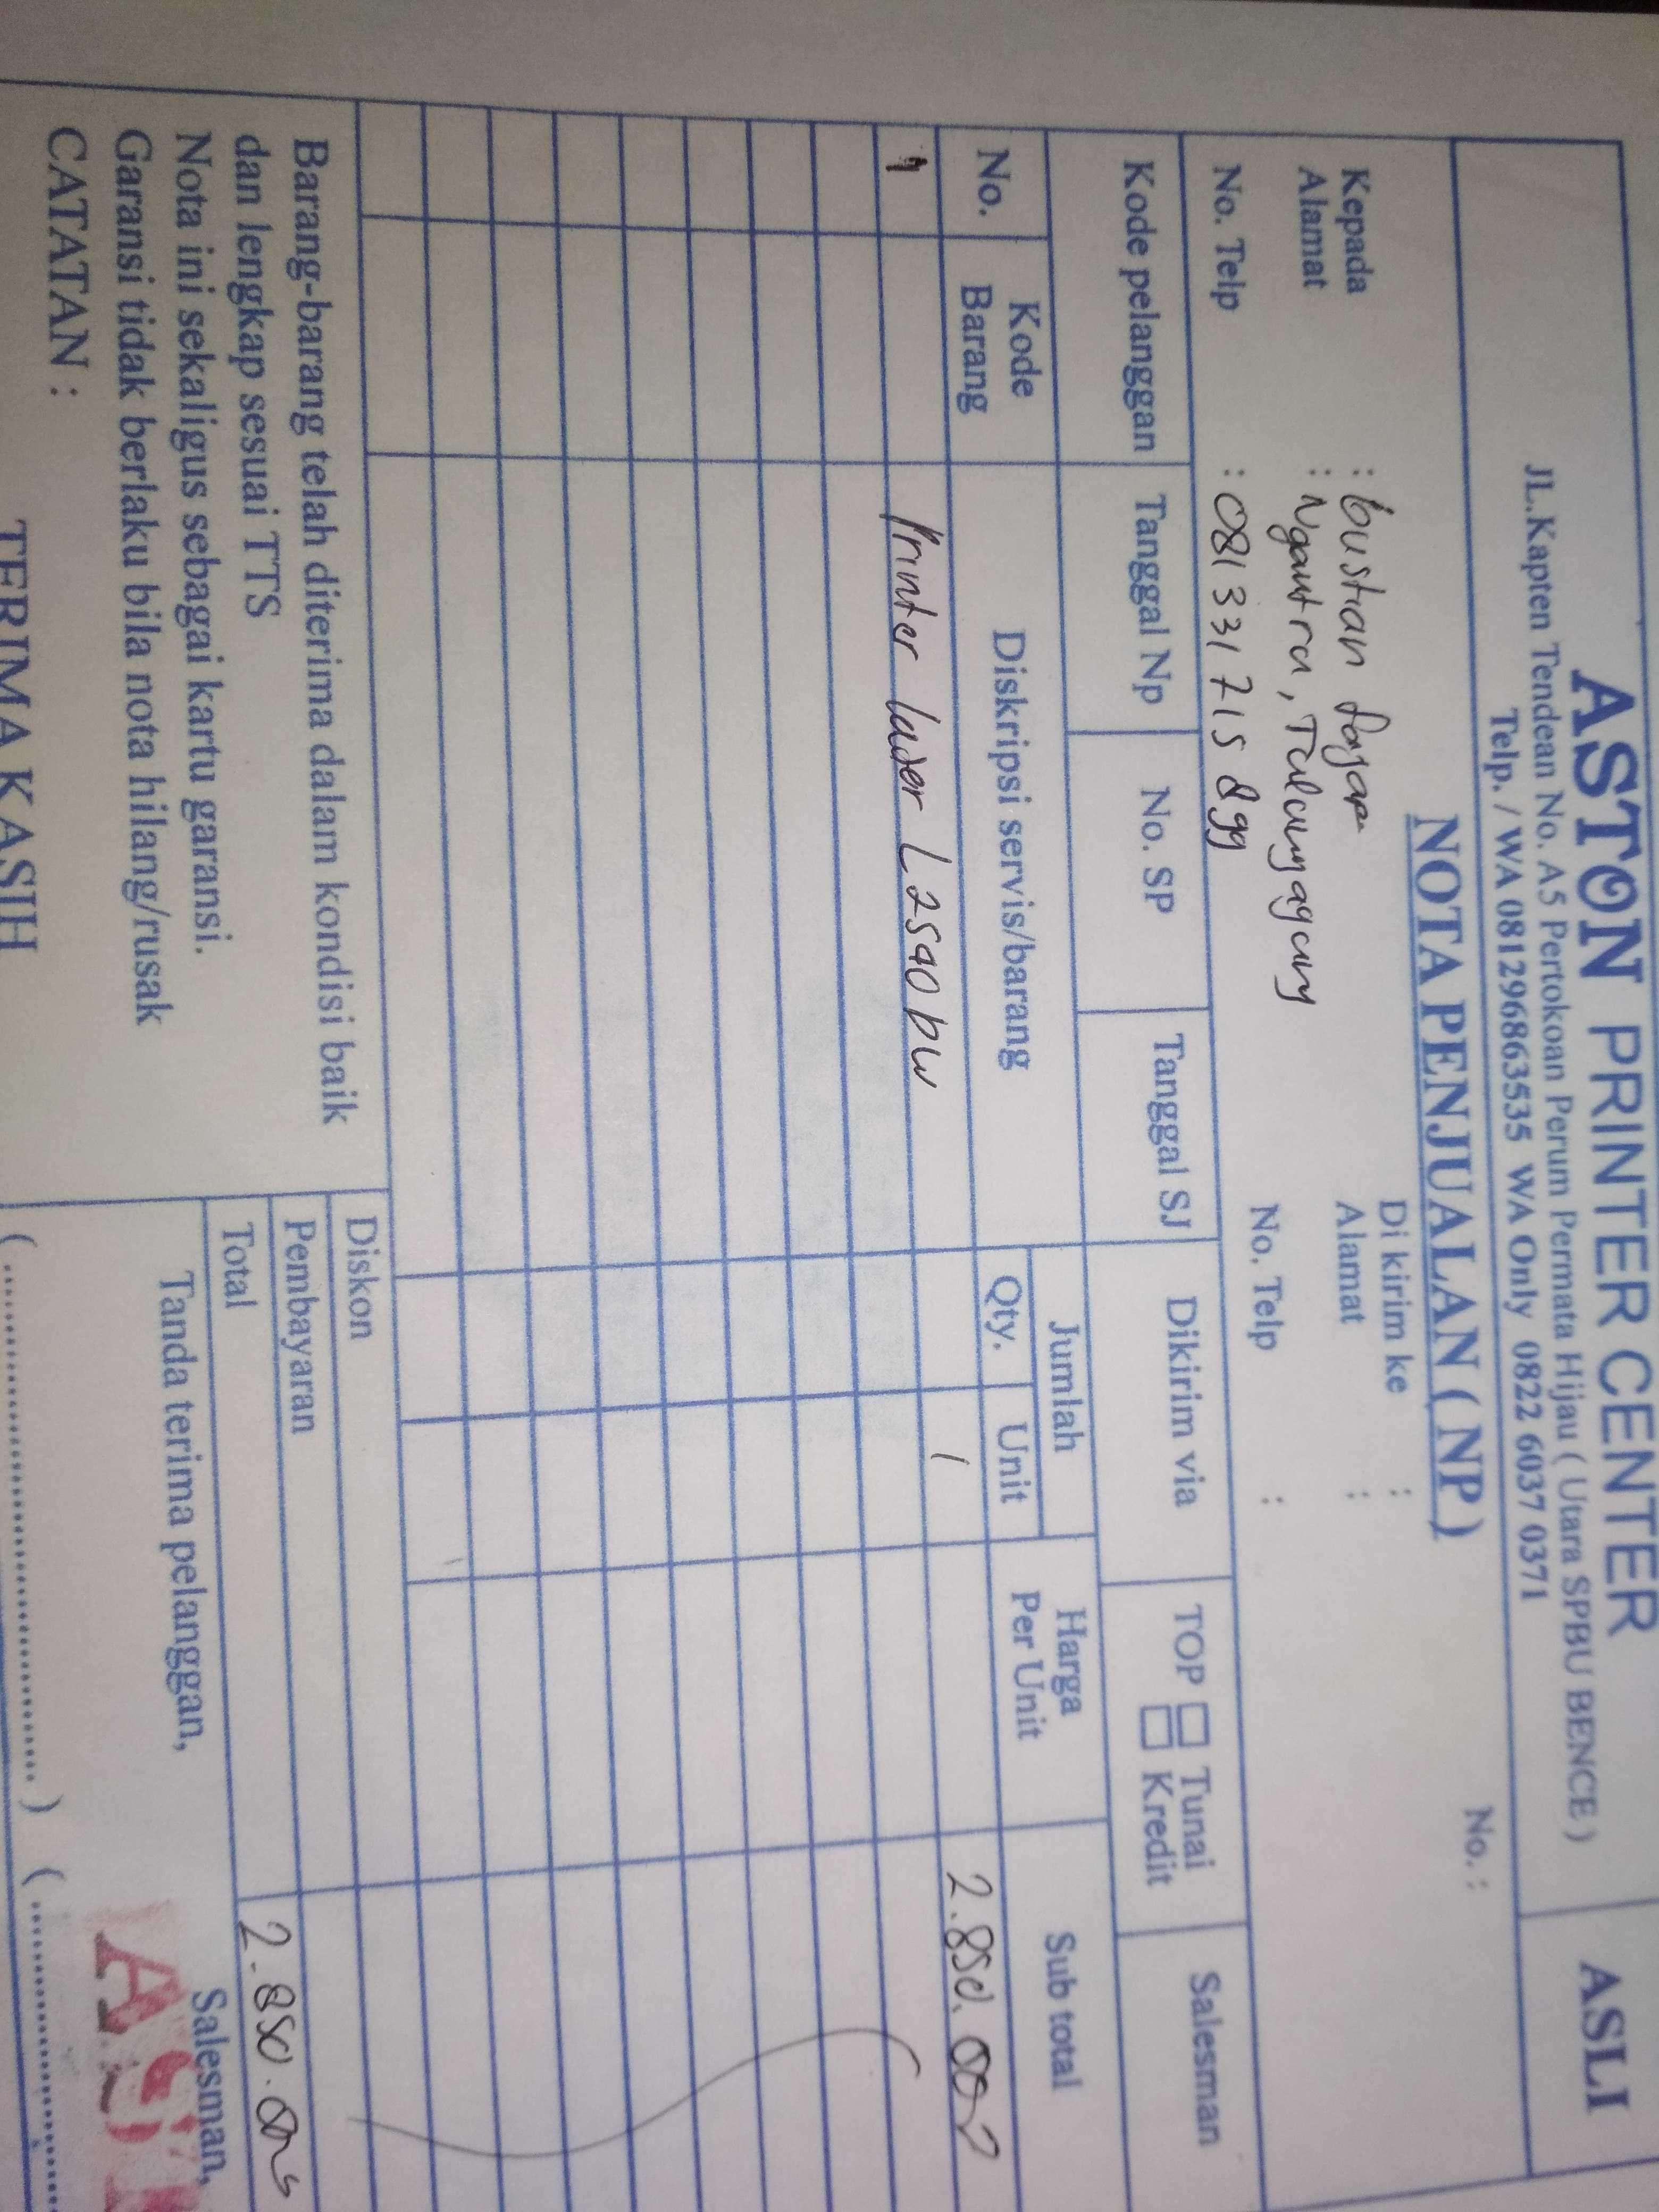 ASTON PRINTER CENTER
JL.Kapten Tendean No. A5 Pertokoan Perum Permata Hijau ( Utara SPBU BENCE )
Telp. / WA 081296863535 WA Only 0822 6037 0371
ASLI
NOTA PENJUALAN ( NP )
No. :
Kepada : bustian
Alamat : Ngantru, Tulungagung
No. Telp : 081 331 715 899
Di kirim ke :
Alamat :
No. Telp :
Kode pelanggan Tanggal Np No. SP Tanggal SJ Dikirim via TOP Tunai Kredit Salesman
No. Kode Barang Diskripsi servis/barang Jumlah Qty. Unit Harga Per Unit Sub total
1 Printer laser L2540 DW 1 2.850.000
Diskon
Pembayaran
Total 2.850.000
Barang-barang telah diterima dalam kondisi baik
dan lengkap sesuai TTS
Nota ini sekaligus sebagai kartu garansi.
Garansi tidak berlaku bila nota hilang/rusak
CATATAN :
TERIMA KASIH
Tanda terima pelanggan, Salesman,
( .................... ) ( ....................